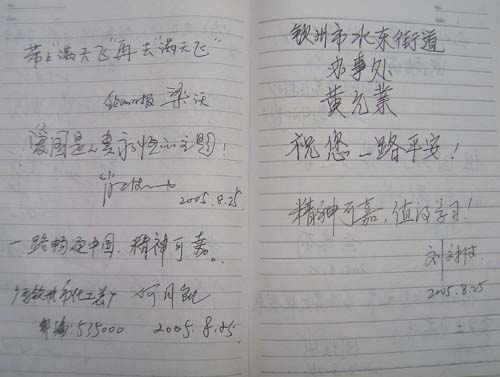 带上“满天飞”再去“满天飞”
钦州日报 梁沃
爱国是人类永恒的主题！
2005.8.25.
一路畅通中国，精神可嘉。
广西钦州市化工总厂
邮编：535000 2005.8.25
钦州市水东街道
办事处
黄允业
祝您一路平安！
精神可嘉，值得学习！
2005.8.25